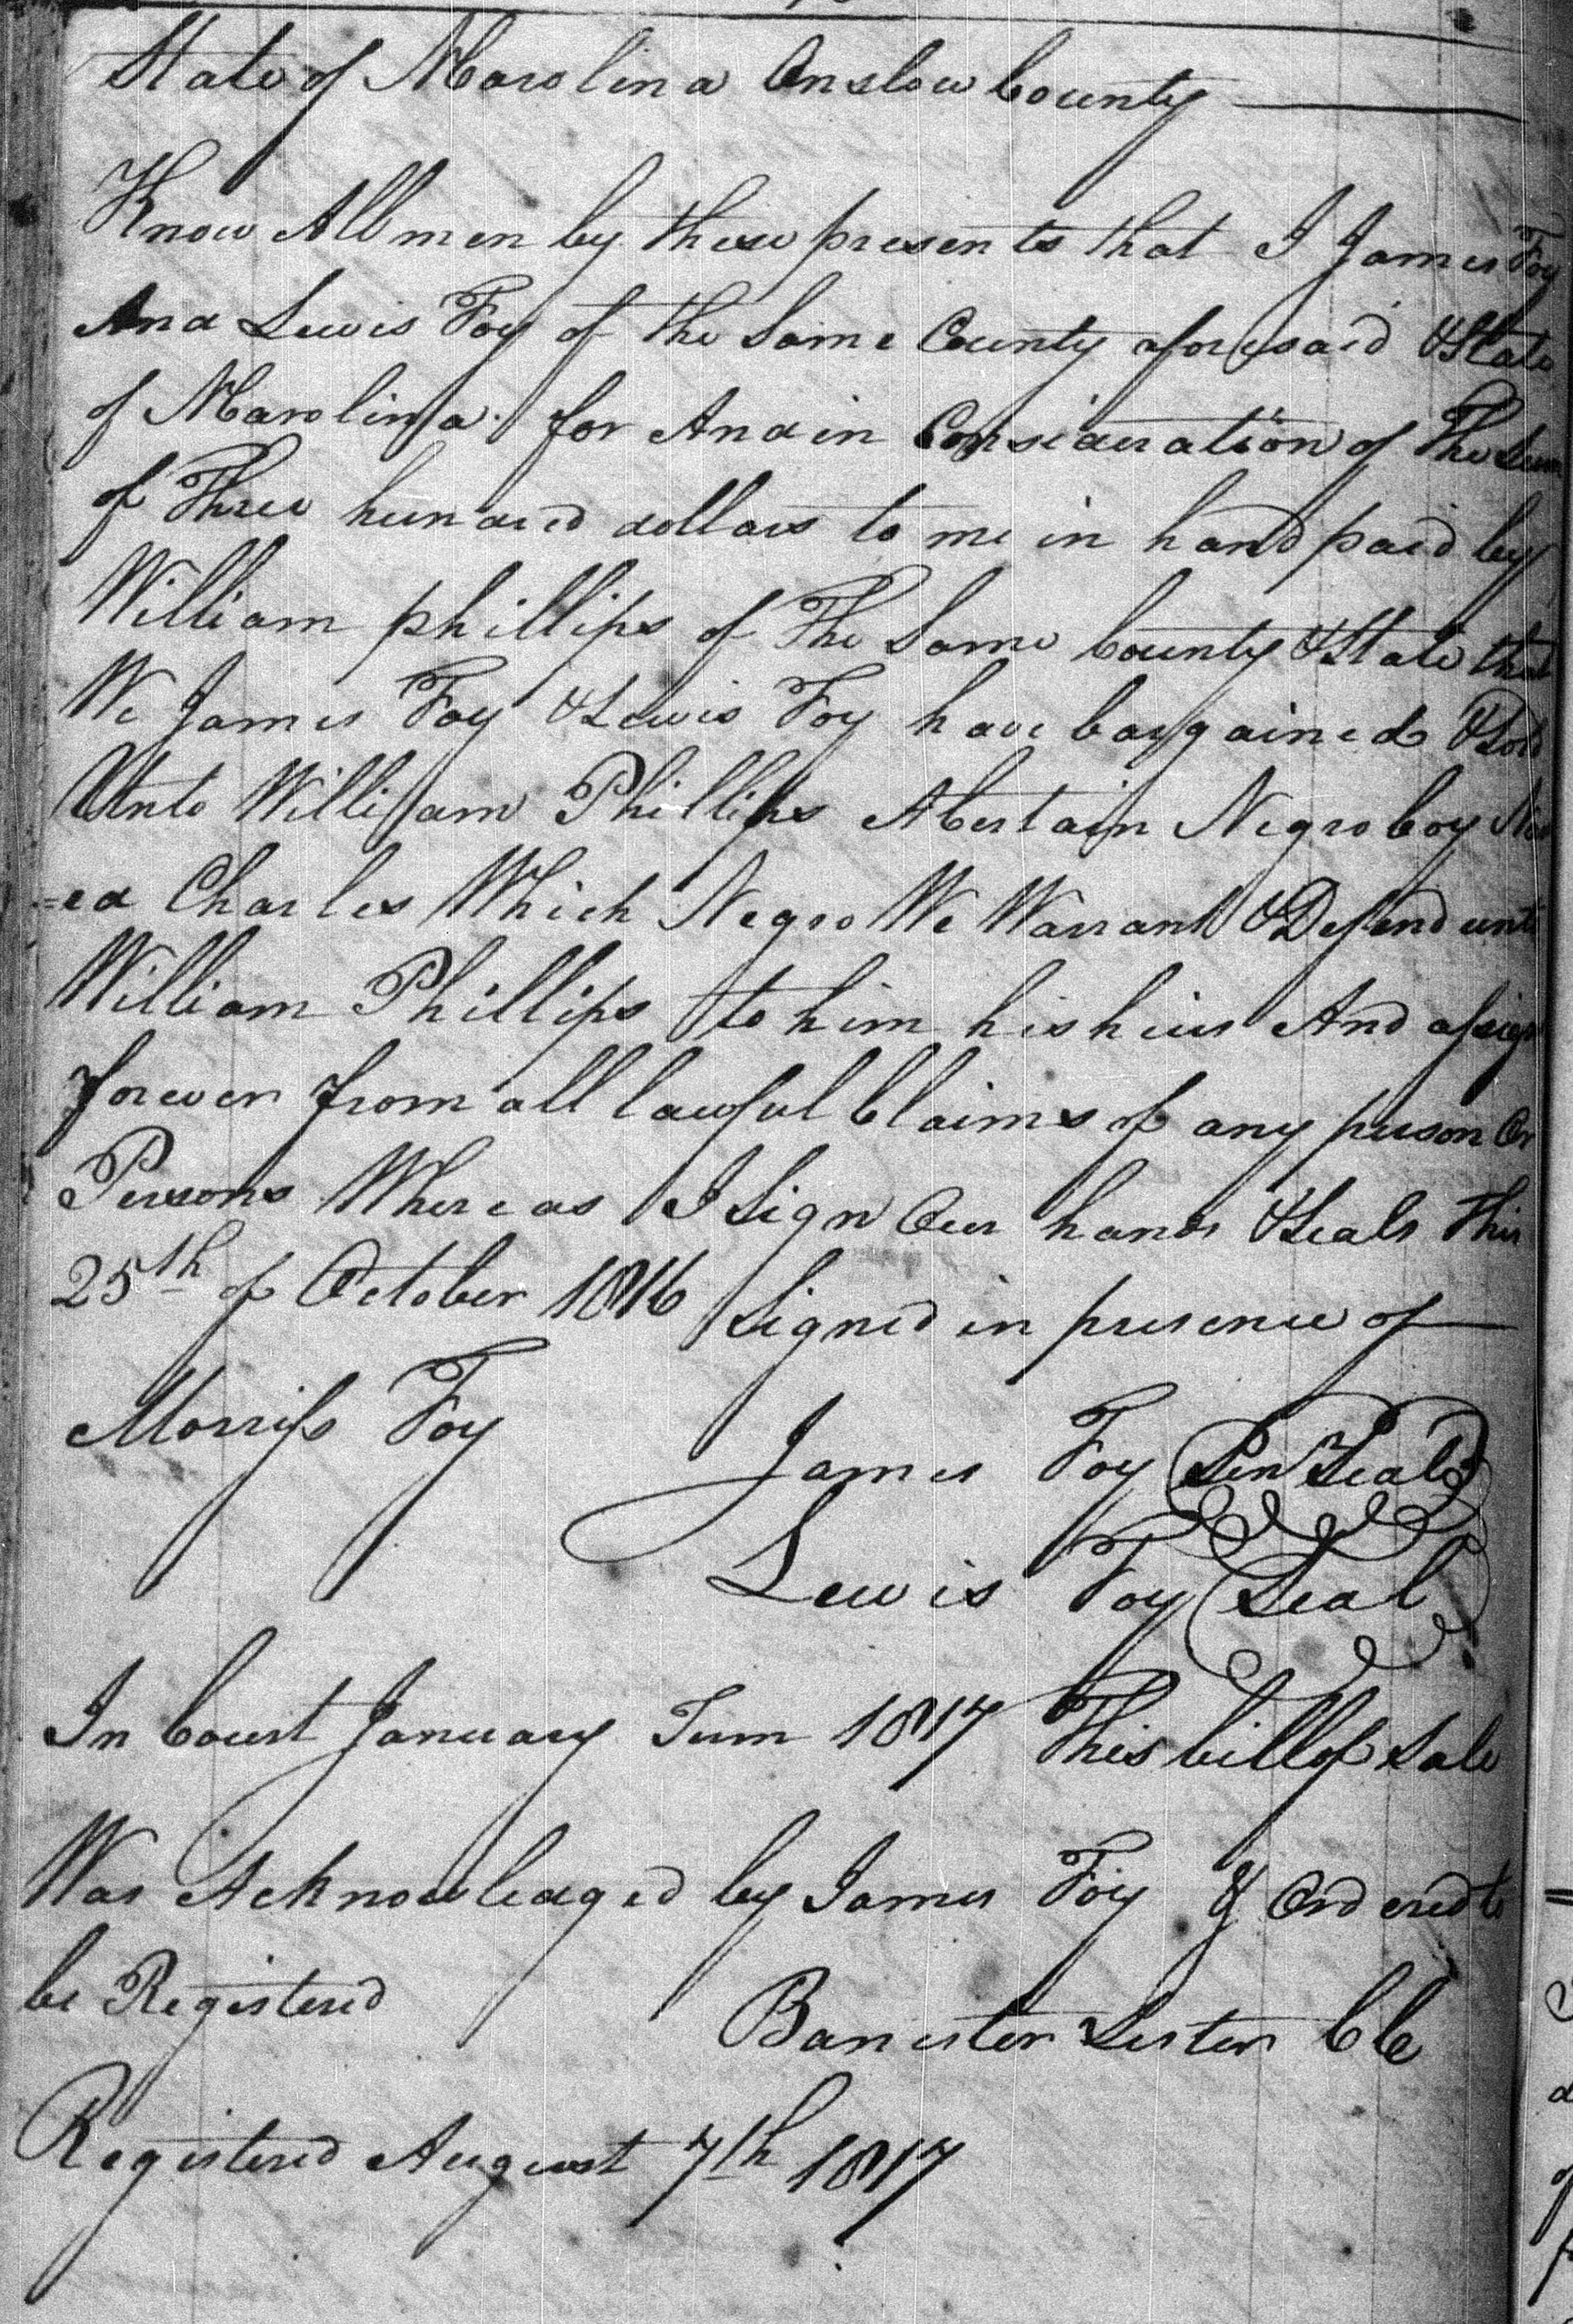 State of NCarolina Onslow County
Know All men by these presents that I James Foy
And Lewis Foy of the Same County aforesaid & State
of NCarolina for And in Consideration of The Sum
of Three hundred dollars to me in hand paid by
William phillips of The Same County & State that
We James Foy & Lewis Foy have bargained & Sold
Unto William Phillips A Certain Negro boy
=ed Charles Which Negro We Warrant & Defend unto
William Phillips to him his heirs And assigns
forever from all lawful Claims of any person Or
Persons Whereas I Sign Our hands & Seals This
25th of October 1816 Signed in presence of
Morriss Foy
James Foy Seal
Lewis Foy Seal
In Court January Term 1817 This bill of Sale
Was Acknowledged by James Foy & Ordered to
be Registered
Banester Lester Clk
Registered August 7th 1817